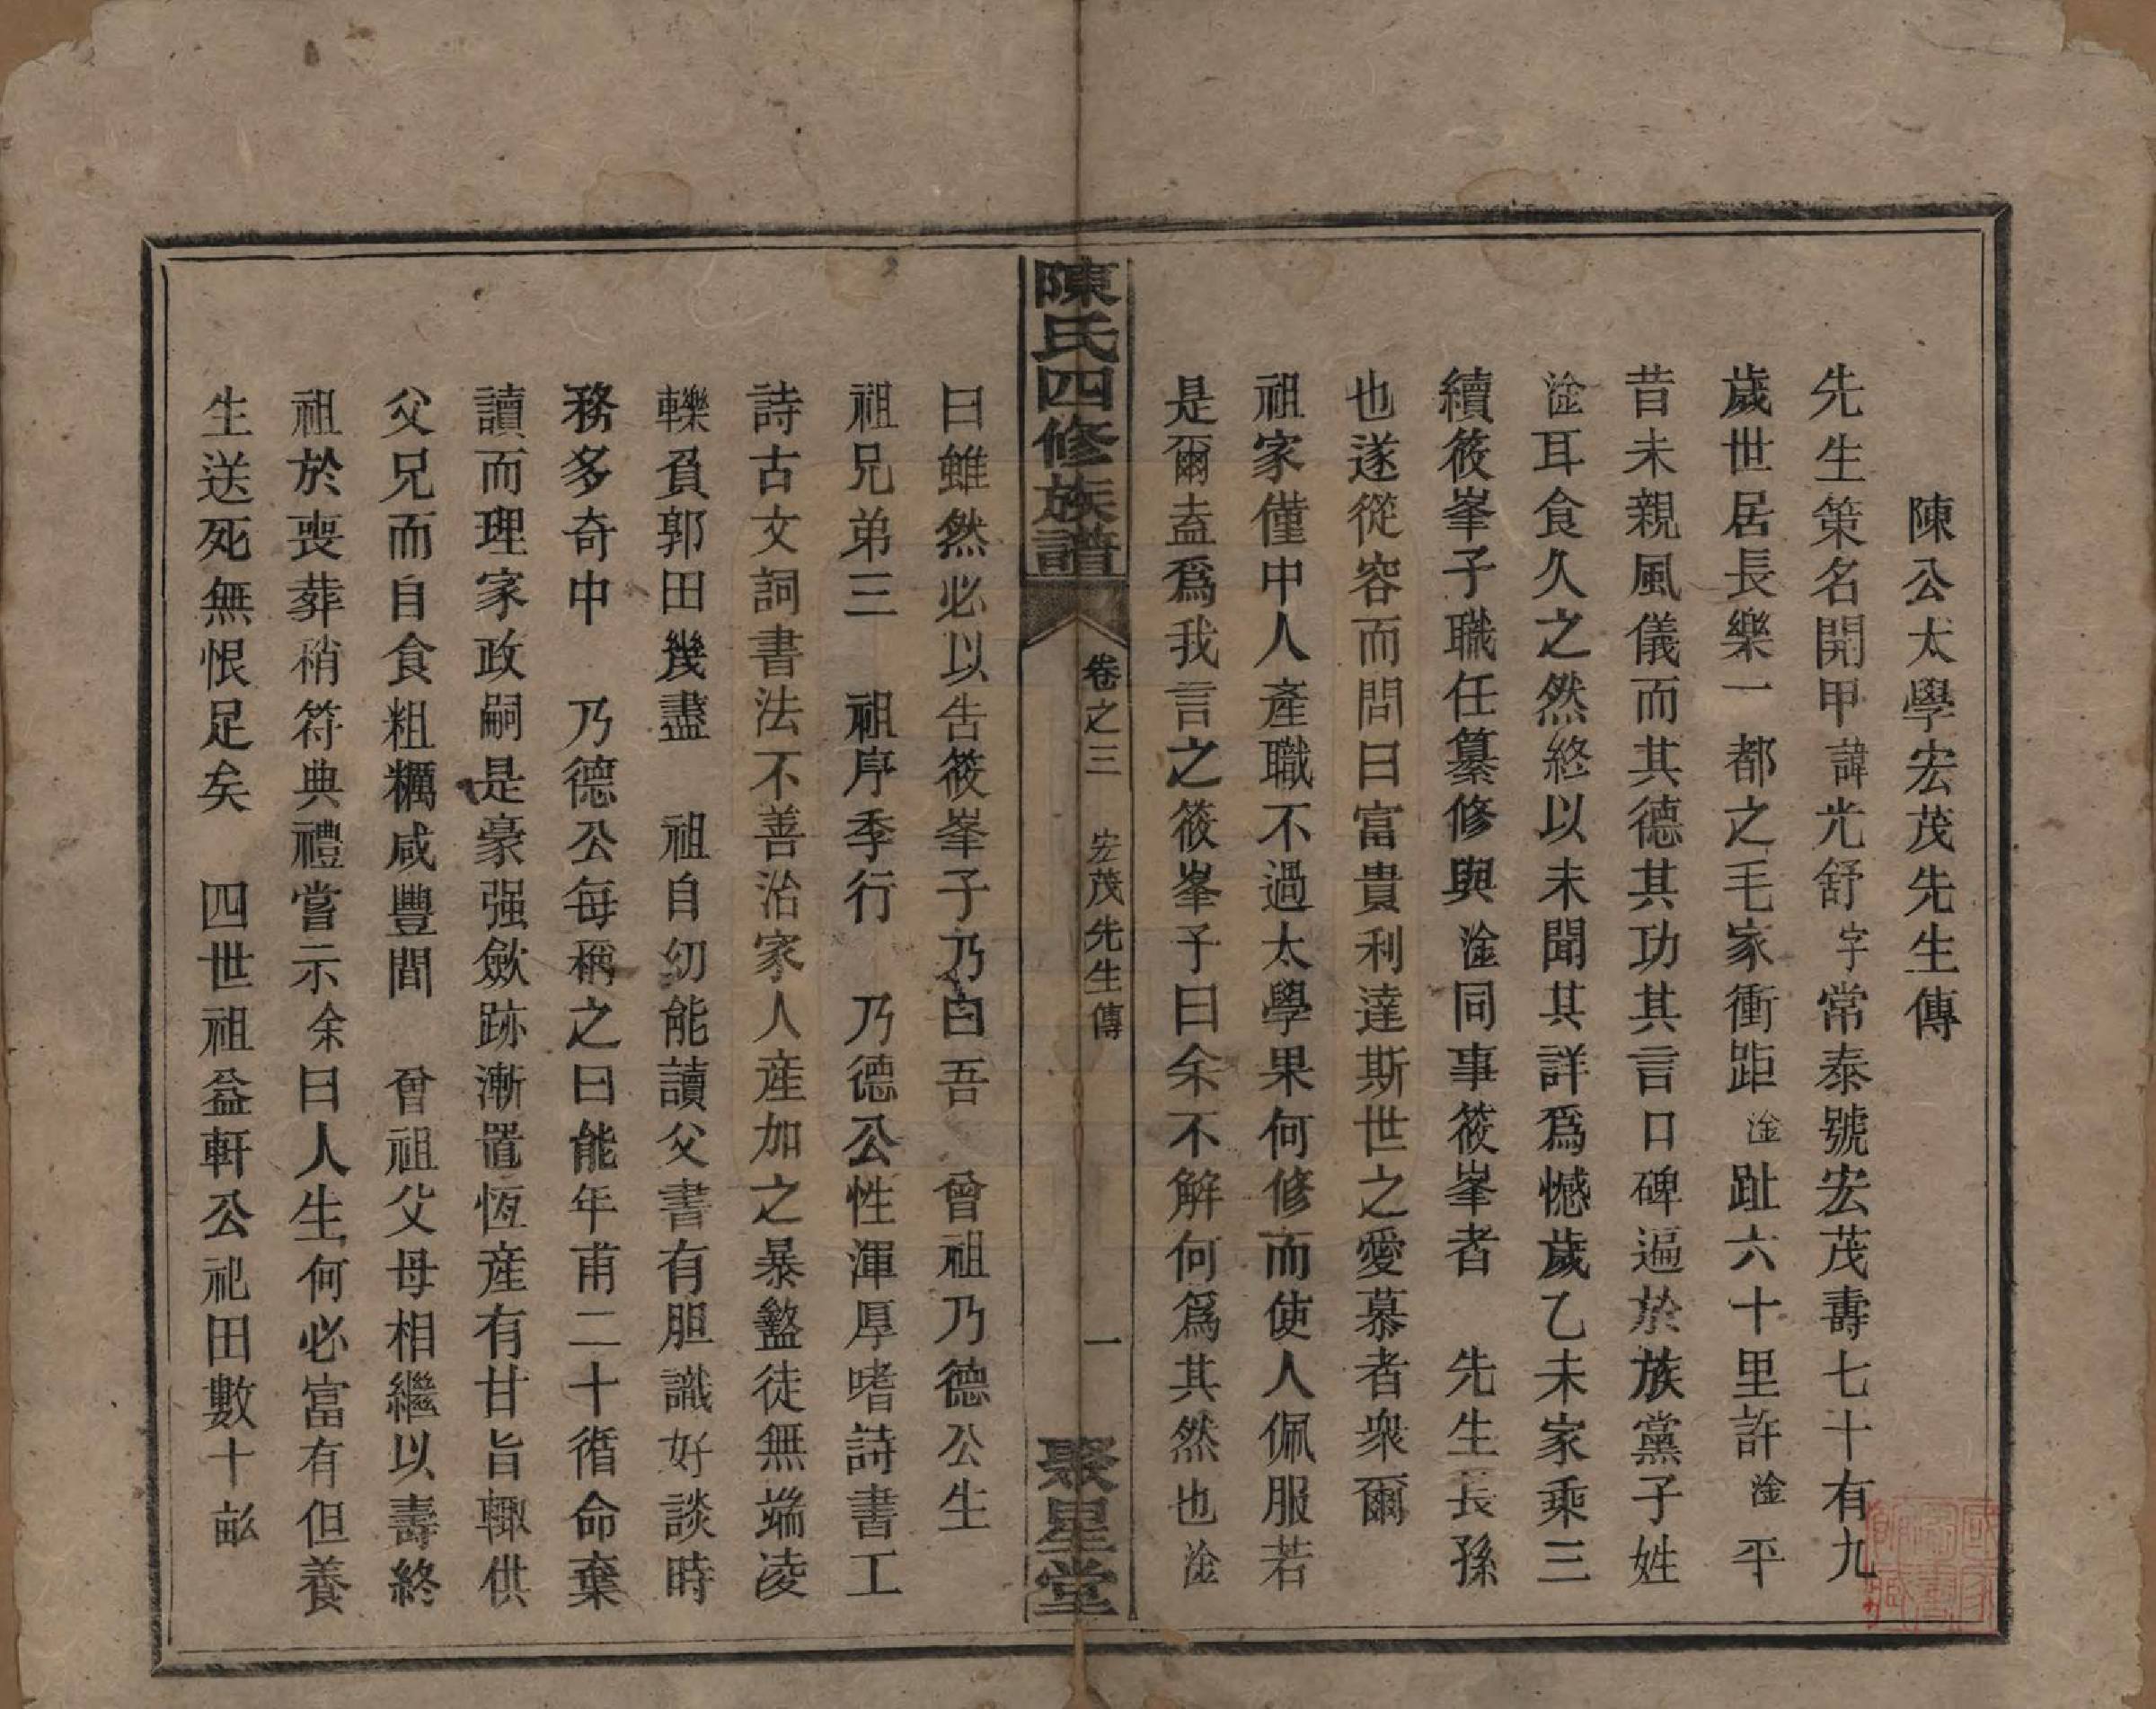 陳公太學宏茂先生傳
先生策名開甲諱光舒字常泰號宏茂壽七十有九
歲世居長樂一都之毛家衝距淦趾六十里許淦平
昔未親風儀而其德其功其言口碑遍於族黨子姓
淦耳食久之然終以未聞其詳爲憾歲乙未家乘三
續筱峯子職任纂修與淦同事筱峯者　先生長孫
也遂從容而問曰富貴利達斯世之愛慕者衆爾
祖家僅中人產職不過太學果何修而使人佩服若
是爾盍爲我言之筱峯子曰余不解何爲其然也淦
陳氏四修族譜　卷之三　宏茂先生傳　一　聚星堂
曰雖然必以告筱峯子乃白吾　曾祖乃德公生
祖兄弟三　祖序季行　乃德公性渾厚嗜詩書工
詩古文詞書法不善治家人產加之暴盭徒無端凌
轢負郭田幾盡　祖自幼能讀父書有胆識好談時
務多奇中　乃德公每稱之曰能年甫二十循命棄
讀而理家政嗣是豪强歛跡漸置恆產有甘旨輒供
父兄而自食粗糲咸豐間　曾祖父母相繼以壽終
祖於喪葬稍符典禮嘗示余曰人生何必富有但養
生送死無恨足矣　四世祖益軒公祀田數十畝